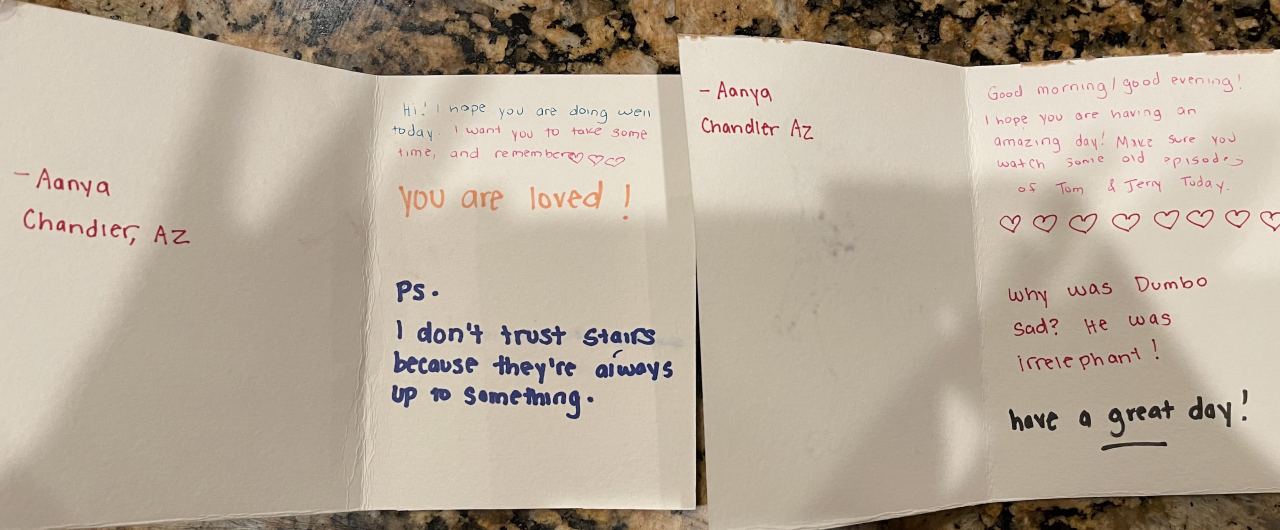 - Aanya
Chandler, AZ
Hi! I hope you are doing well
today. I want you to take some
time, and remember♡♡♡
you are loved!
PS.
I don't trust stairs
because they're always
up to something.
- Aanya
Chandler AZ
Good morning/good evening!
I hope you are having an
amazing day! Make sure you
watch some old episodes
of Tom & Jerry Today.
♡ ♡ ♡ ♡ ♡ ♡ ♡ ♡
Why was Dumbo
sad? He was
irrelephant!
have a great day!